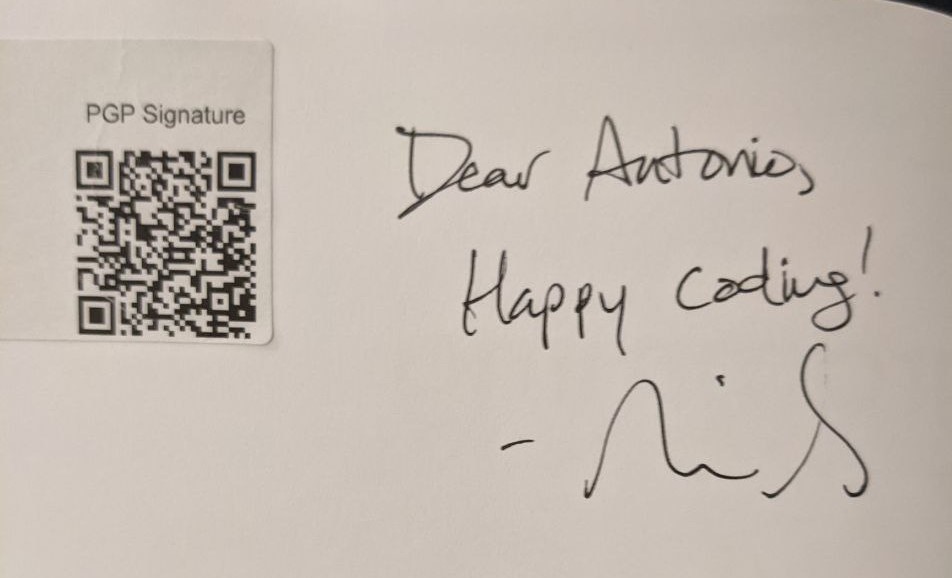 PGP Signature
Dear Antonio,
Happy Coding!